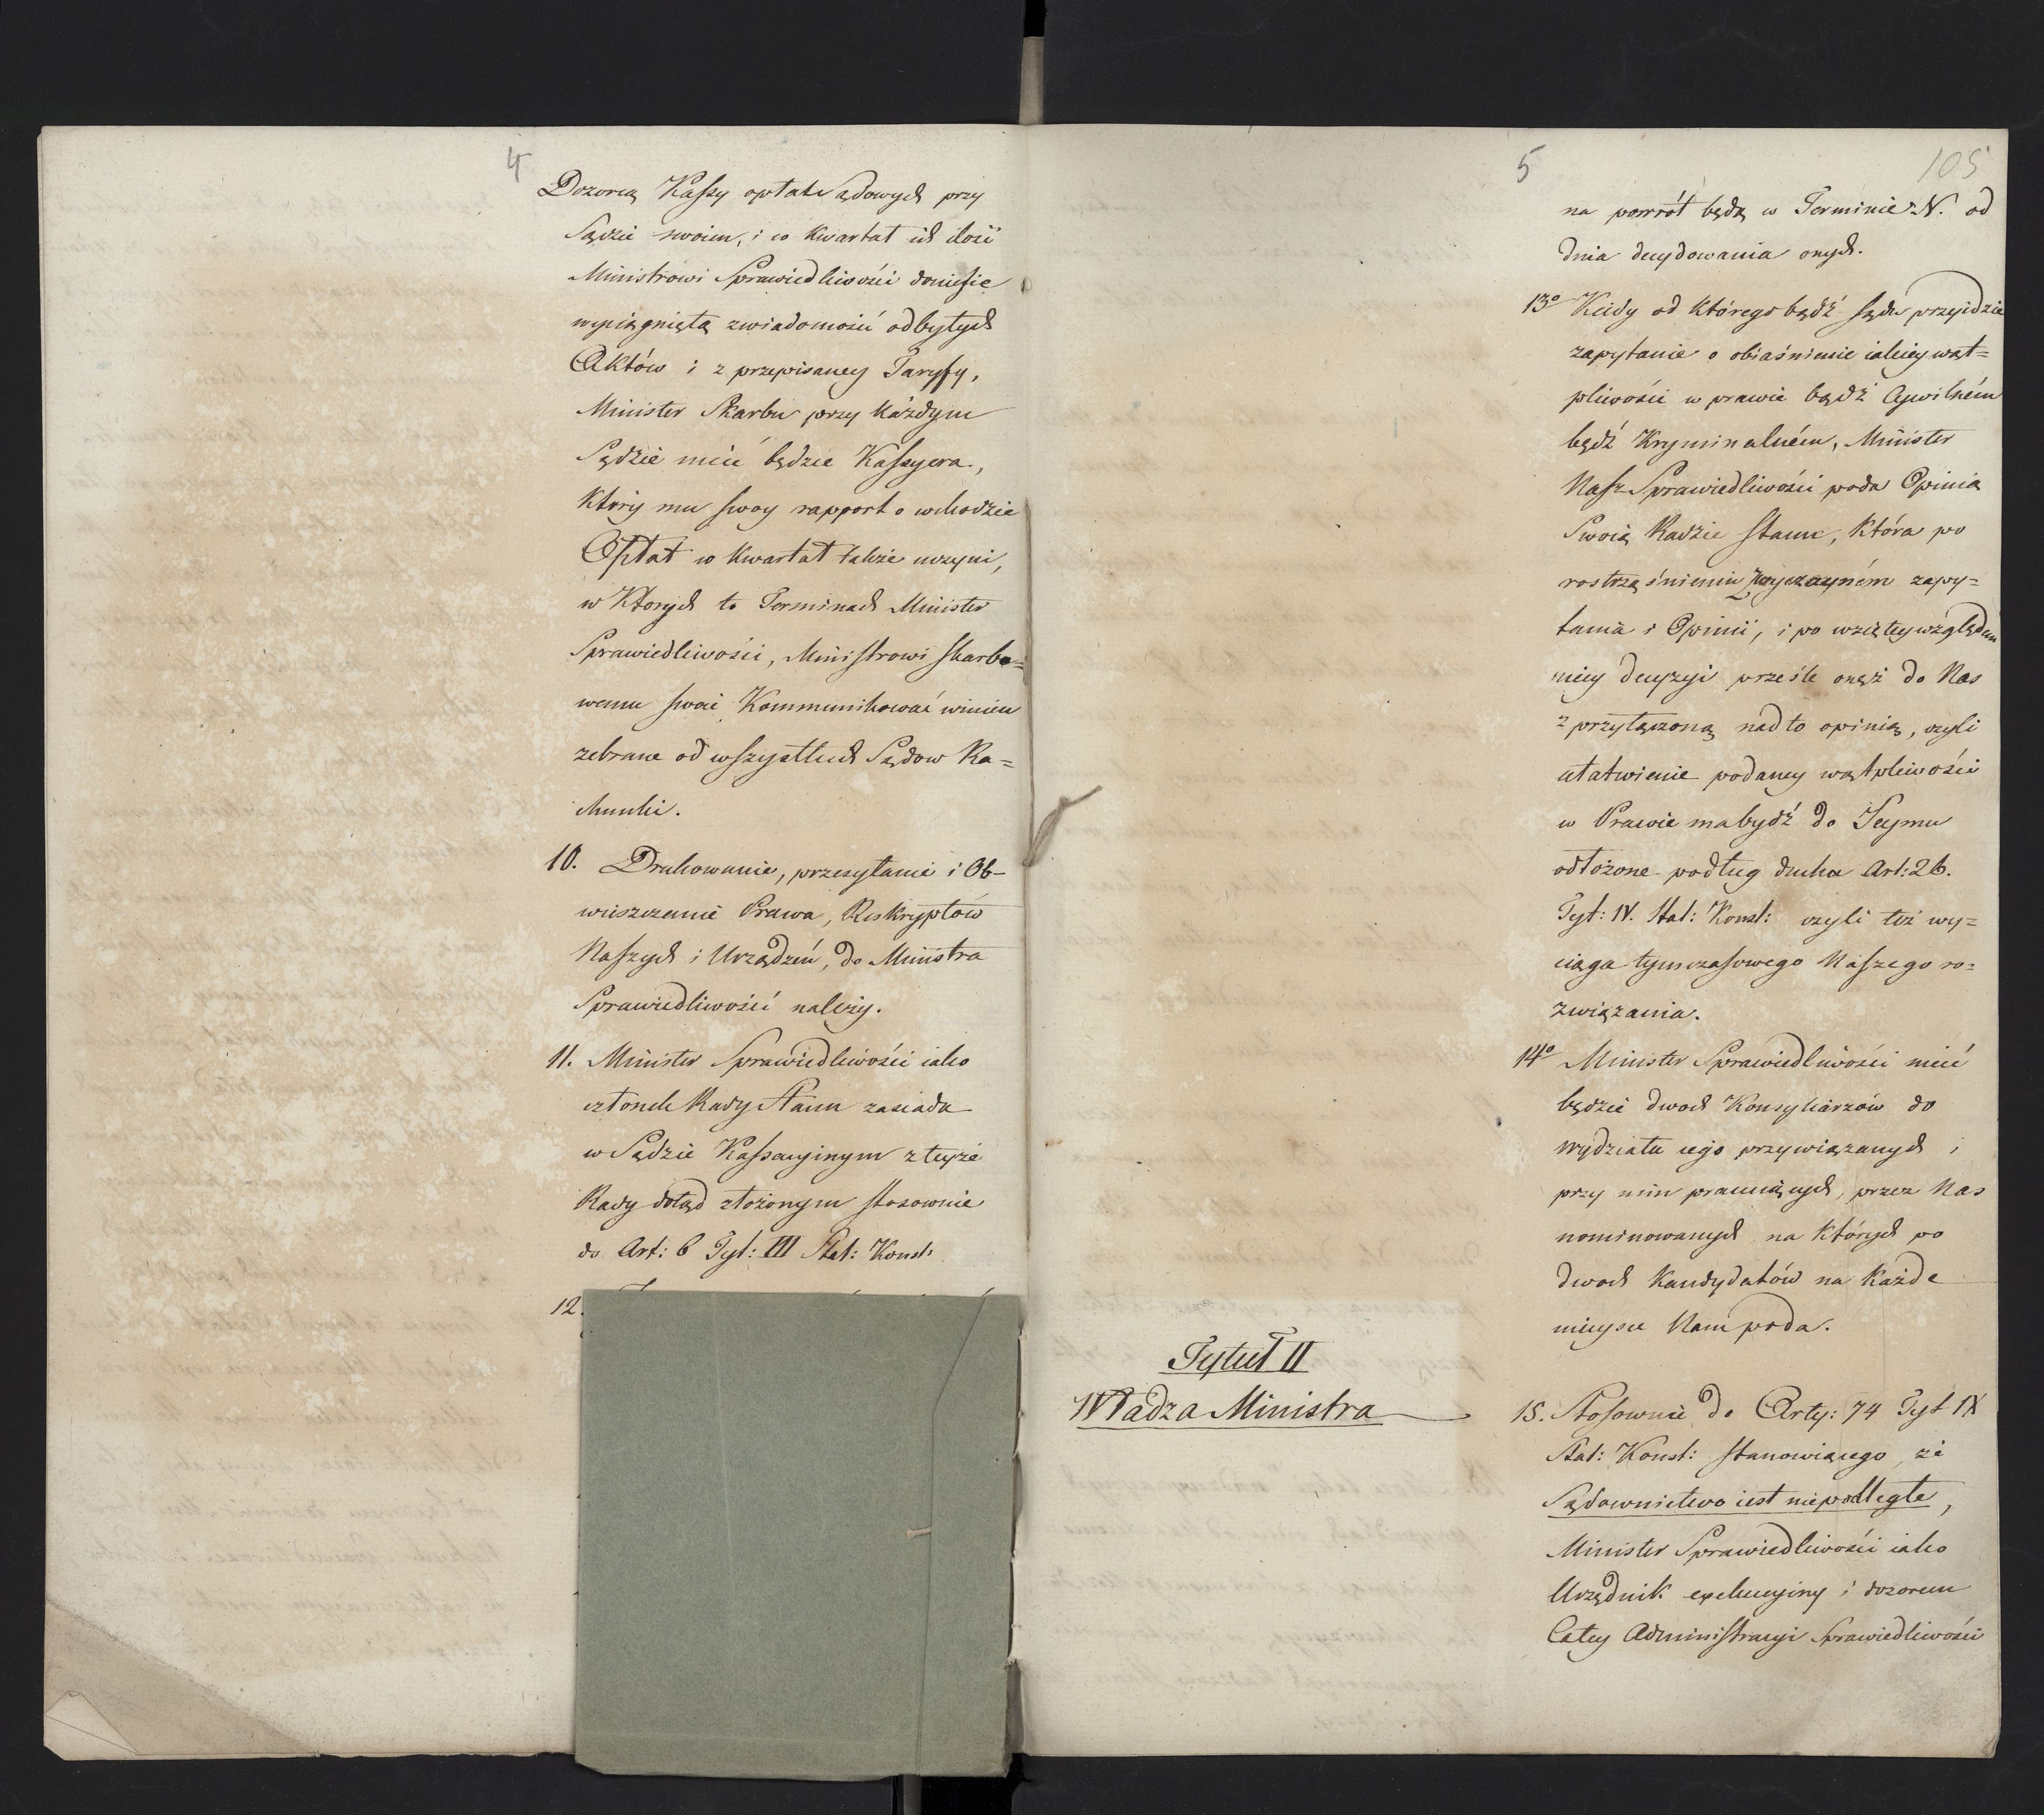 4
Dozorcą Kassy opłat Sądowych przy
Sądzie swoim, i co Kwartał ich ilość
Ministrowi Sprawiedliwości doniesie
wyciągniętą z wiadomości odbytych
Aktów i z przepisaney Taryfy,
Minister Skarbu przy każdym
Sądzie mieć będzie Kassyera,
który mu swoy rapport o wchodzie
Opłat co Kwartał także uczyni,
w Których to Terminach Minister
Sprawiedliwości, Ministrowi skarbo=
wemu swoie Kommunikować winien
zebrane od wszystkich Sądow Ra=
chunki.
10. Drukowanie, przesyłanie i Ob-
wieszczenie Prawa, Reskryptów
Naszych i Urządzeń, do Ministra
Sprawiedliwości należy.
11. Minister Sprawiedliwości iako
członek Rady Stanu zasiada
w Sądzie Kassacyinym z teyże
Rady dotąd złożonym stosownie
do Art: 6 Tyt: III Stat: Konst:
12.
5
105
na powrót będą w Terminie N. od
dnia decydowania onych.
13° Kiedy od którego bądź sądu przyidzie
zapytanie o obiaśnienie iakiey wąt=
pliwości w prawie bądź Cywilném
bądź Kryminalném, Minister
Nasz Sprawiedliwości poda Opinią
Swoią Radzie stanu, Która po
rostrząśnieniu zapy=
tania i Opinii, i po wziętey względem
niey decyzyi prześle onęż do Nas
z przyłączoną nadto opinią, czyli
ułatwienie podaney wątpliwości
w Prawie ma bydź do Seymu
odłożone podług ducha Art: 26.
Tyt: IV. Stat: Konst: czyli też wy=
ciąga tymczasowego Naszego ro=
związania.
14° Minister Sprawiedliwości mieć
będzie dwoch Konsyliarzów do
wydziału iego przywiązanych i
przy nim pracuiących, przez Nas
nominowanych na Których po
dwoch Kandydatów na Każde
mieysce Nam poda.
Tytuł II
Władza Ministra
15. Stosownie do Arty: 74 Tyt IX
Stat: Konst: stanowiącego że
Sądownictwo iest niepodległe,
Minister Sprawiedliwości iako
Urzędnik exekucyiny i dozorcu
Całey Administracyi Sprawiedliwości